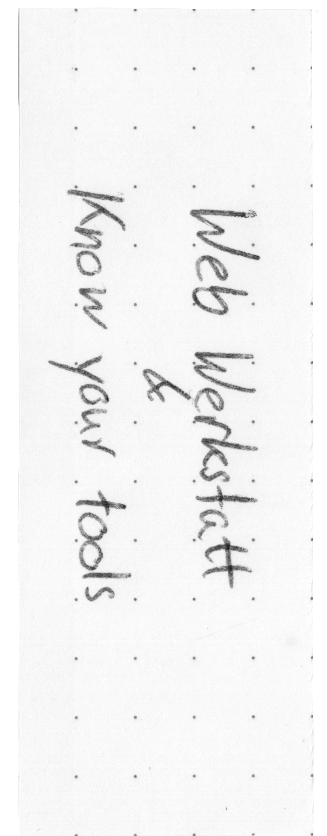 Web Werkstatt
&
Know your tools